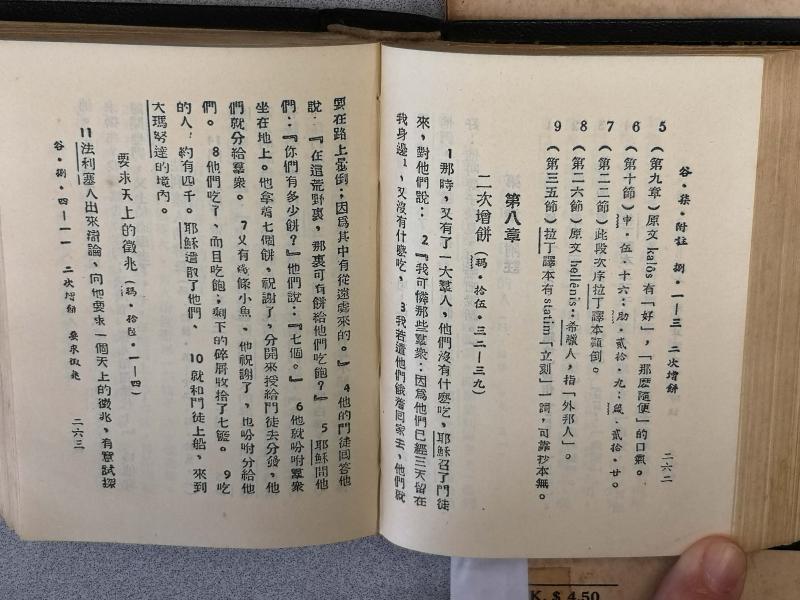 谷·柒·附註　捌·一—三　二次增餅　二六二
5（第九章）原文 kalôs 有「好」，「那麼隨便」的口氣。
6（第十節）申·伍·十六；勛·貳拾·九；戾·貳拾·廿。
7（第二二節）此段次序拉丁譯本顛倒。
8（第二六節）原文 hellênis：希臘人，指「外邦人」。
9（第三五節）拉丁譯本有 statim「立刻」一詞，可靠抄本無。
第八章
二次增餅（瑪·拾伍·三二—三九）
1 那時，又有了一大羣人，他們沒有什麼吃，耶穌召了門徒
來，對他們說：2『我可憐那些羣衆：因爲他們已經三天留在
我身邊¹，又沒有什麼吃，3 我若遣他們餓着回家去，他們就
要在路上暈倒；因爲其中有從遠處來的。』4 他的門徒回答他
說：『在這荒野裏，那裏可有餅給他們吃飽？』5 耶穌問他
們：『你們有多少餅？』他們說：『七個。』6 他就吩咐羣衆
坐在地上。他拿着七個餅，祝謝了，分開來授給門徒去分發，他
們就分給羣衆。7 又有幾條小魚，他祝謝了，也吩咐分給他
們。8 他們吃了，而且吃飽；剩下的碎屑收拾了七籃。9 吃
的人，約有四千。耶穌遣散了他們，10 就和門徒上船，來到
大瑪努達的境內。
要求天上的徵兆（瑪·拾陸·一—四）
11 法利塞人出來辯論，向他要求一個天上的徵兆，有意試探
谷·捌·四—一一　二次增餅　要求徵兆　二六三
K. $ 4.50